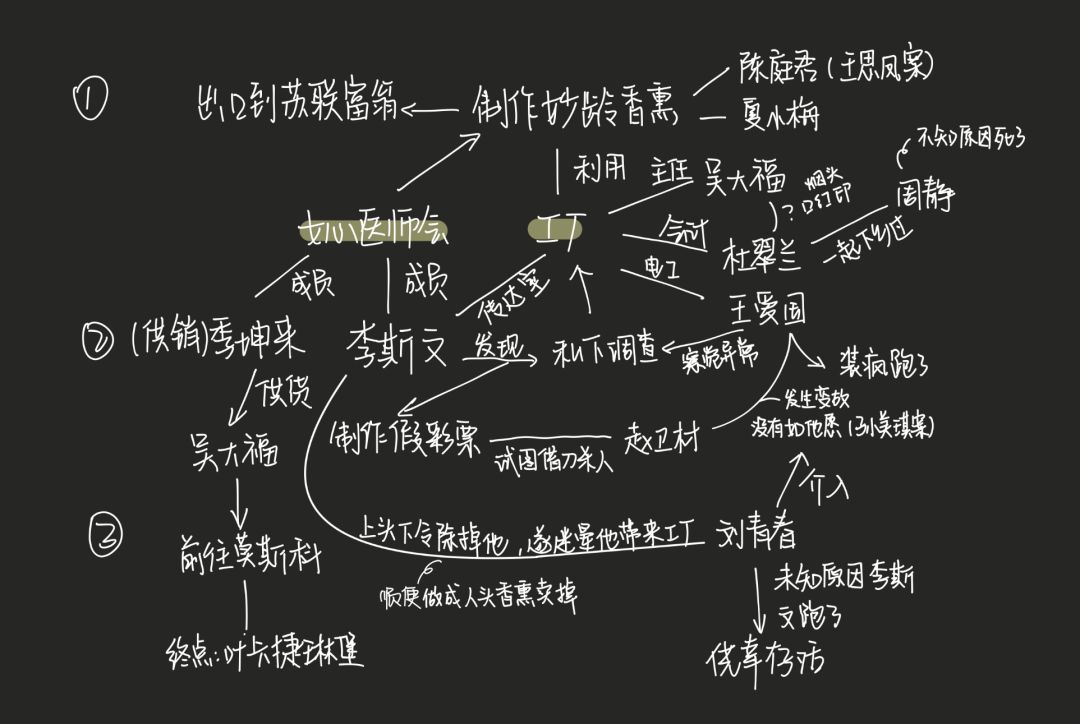 ①
出口到苏联富翁
制作妙龄香熏
陈庭君(王思凤案)
夏小梅
利用
主班
吴大福
不知原因死了
烟头
?
DST印
周静
女心医师会
工厂
会计
杜翠兰
一起下乡过
成员
成员
传达室
电工
王爱国
②
(供销)季坤来
李斯文
发现
私下调查
察觉异常
装疯跑了
供货
发生变故
没有如他愿(孙美琪案)
制作假彩票
试图借刀杀人
赵卫材
吴大福
介入
③
上头下令除掉他,遂迷晕他带来工厂
刘青春
前往莫斯科
顺便做成人头香熏卖掉
未知原因李斯
文跑了
终点:叶卡捷琳堡
侥幸存活